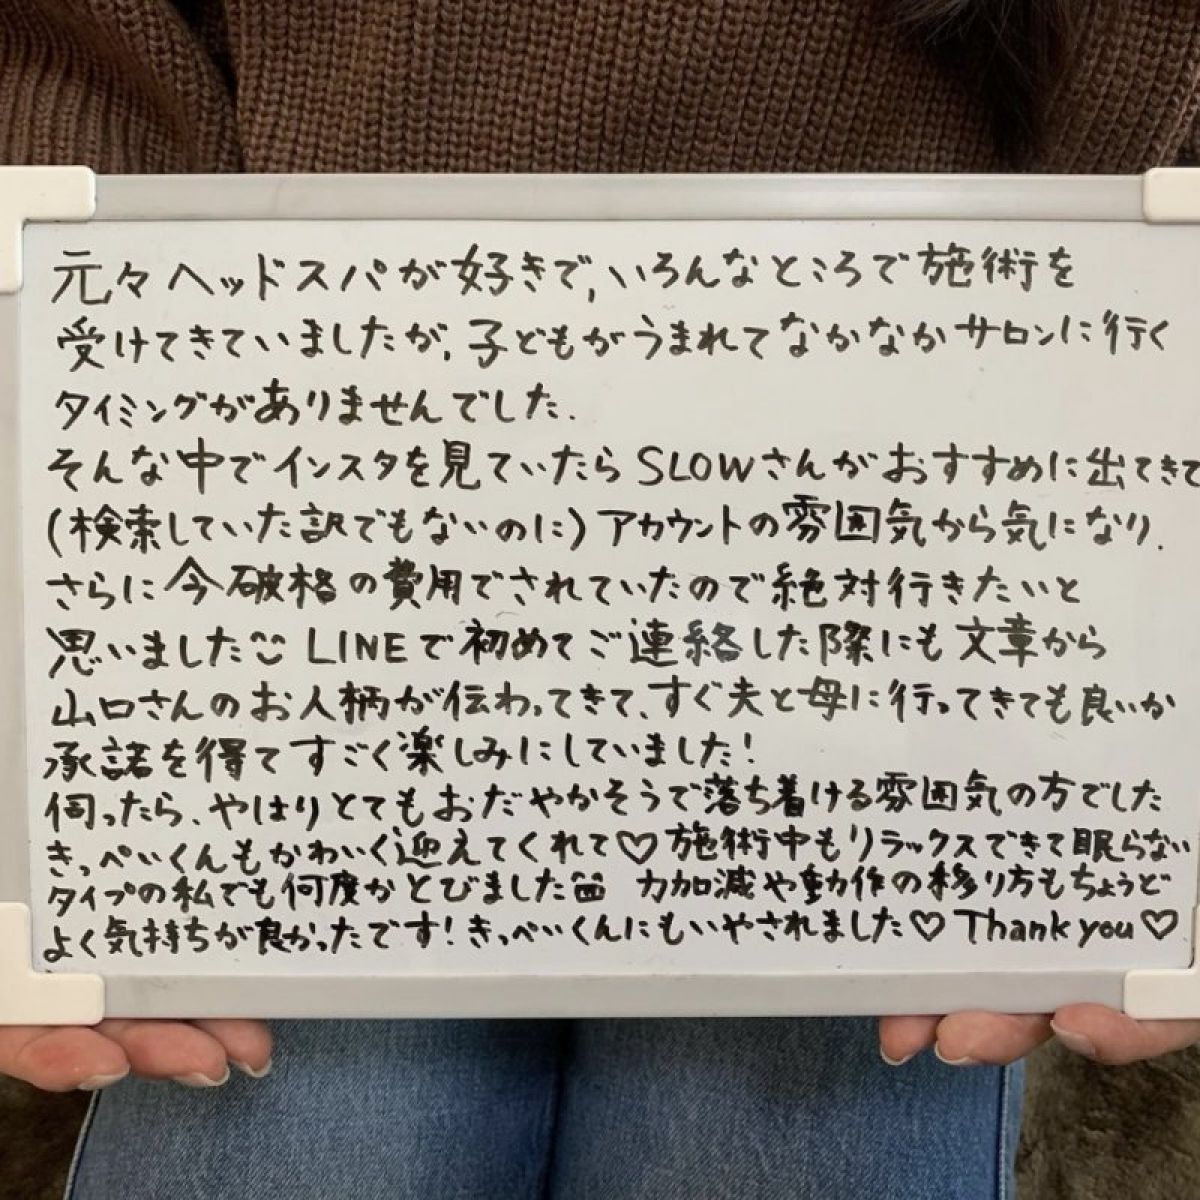 元々ヘッドスパが好きで,いろんなところで施術を
受けてきていましたが,子どもがうまれてなかなかサロンに行く
タイミングがありませんでした.
そんな中でインスタを見ていたらSLOWさんがおすすめに出てきて
(検索していた訳でもないのに)アカウントの雰囲気から気になり.
さらに今破格の費用でされていたので絶対行きたいと
思いました LINEで初めてご連絡した際にも文章から
山口さんのお人柄が伝わってきて、すぐ夫と母に行ってきても良いか
承諾を得てすごく楽しみにしていました!
伺ったら、やはりとてもおだやかそうで落ち着ける雰囲気の方でした
きっぺいくんもかわいく迎えてくれて♡施術中もリラックスできて眠らない
タイプの私でも何度かとびました 力加減や動作の移り方もちょうど
よく気持ちが良かったです!きっぺいくんにもいやされました♡ Thank you♡